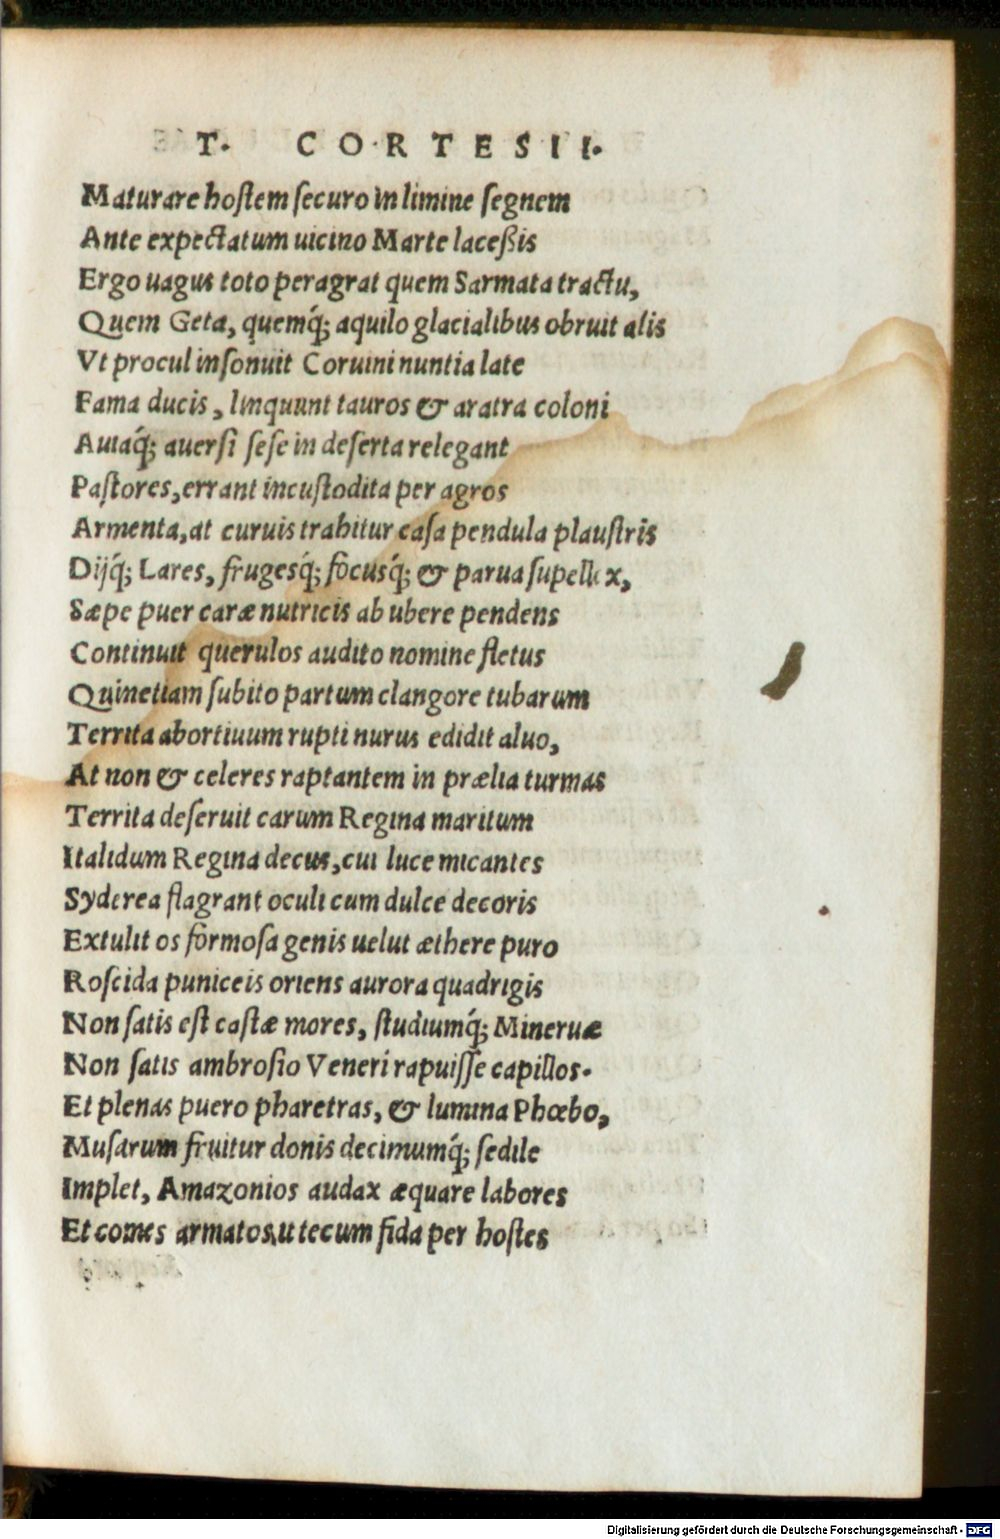 T. CORTESII.
Maturare hostem securo in limine segnem
Ante expectatum uicino Marte laceßis
Ergo uagus toto peragrat quem Sarmata tractu,
Quem Geta, quemq́; aquilo glacialibus obruit alis
Vt procul insonuit Coruini nuntia late
Fama ducis, linquunt tauros & aratra coloni
Auiaq́; auersi sese in deserta relegant
Pastores, errant incustodita per agros
Armenta, at curuis trahitur casa pendula plaustris
Dijq́; Lares, frugesq́; focusq́; & parua supellex,
Sæpe puer caræ nutricis ab ubere pendens
Continuit querulos audito nomine fletus
Quinetiam subito partum clangore tubarum
Territa abortiuum rupti nurus edidit aluo,
At non & celeres raptantem in prælia turmas
Territa deseruit carum Regina maritum
Italidum Regina decus, cui luce micantes
Syderea flagrant oculi cum dulce decoris
Extulit os formosa genis uelut æthere puro
Roscida puniceis oriens aurora quadrigis
Non satis est castæ mores, studiumq́; Mineruæ
Non satis ambrosio Veneri rapuisse capillos.
Et plenas puero pharetras, & lumina Phœbo,
Musarum fruitur donis decimumq́; sedile
Implet, Amazonios audax æquare labores
Et comes armatos, u tecum fida per hostes
Digitalisierung gefördert durch die Deutsche Forschungsgemeinschaft - DFG